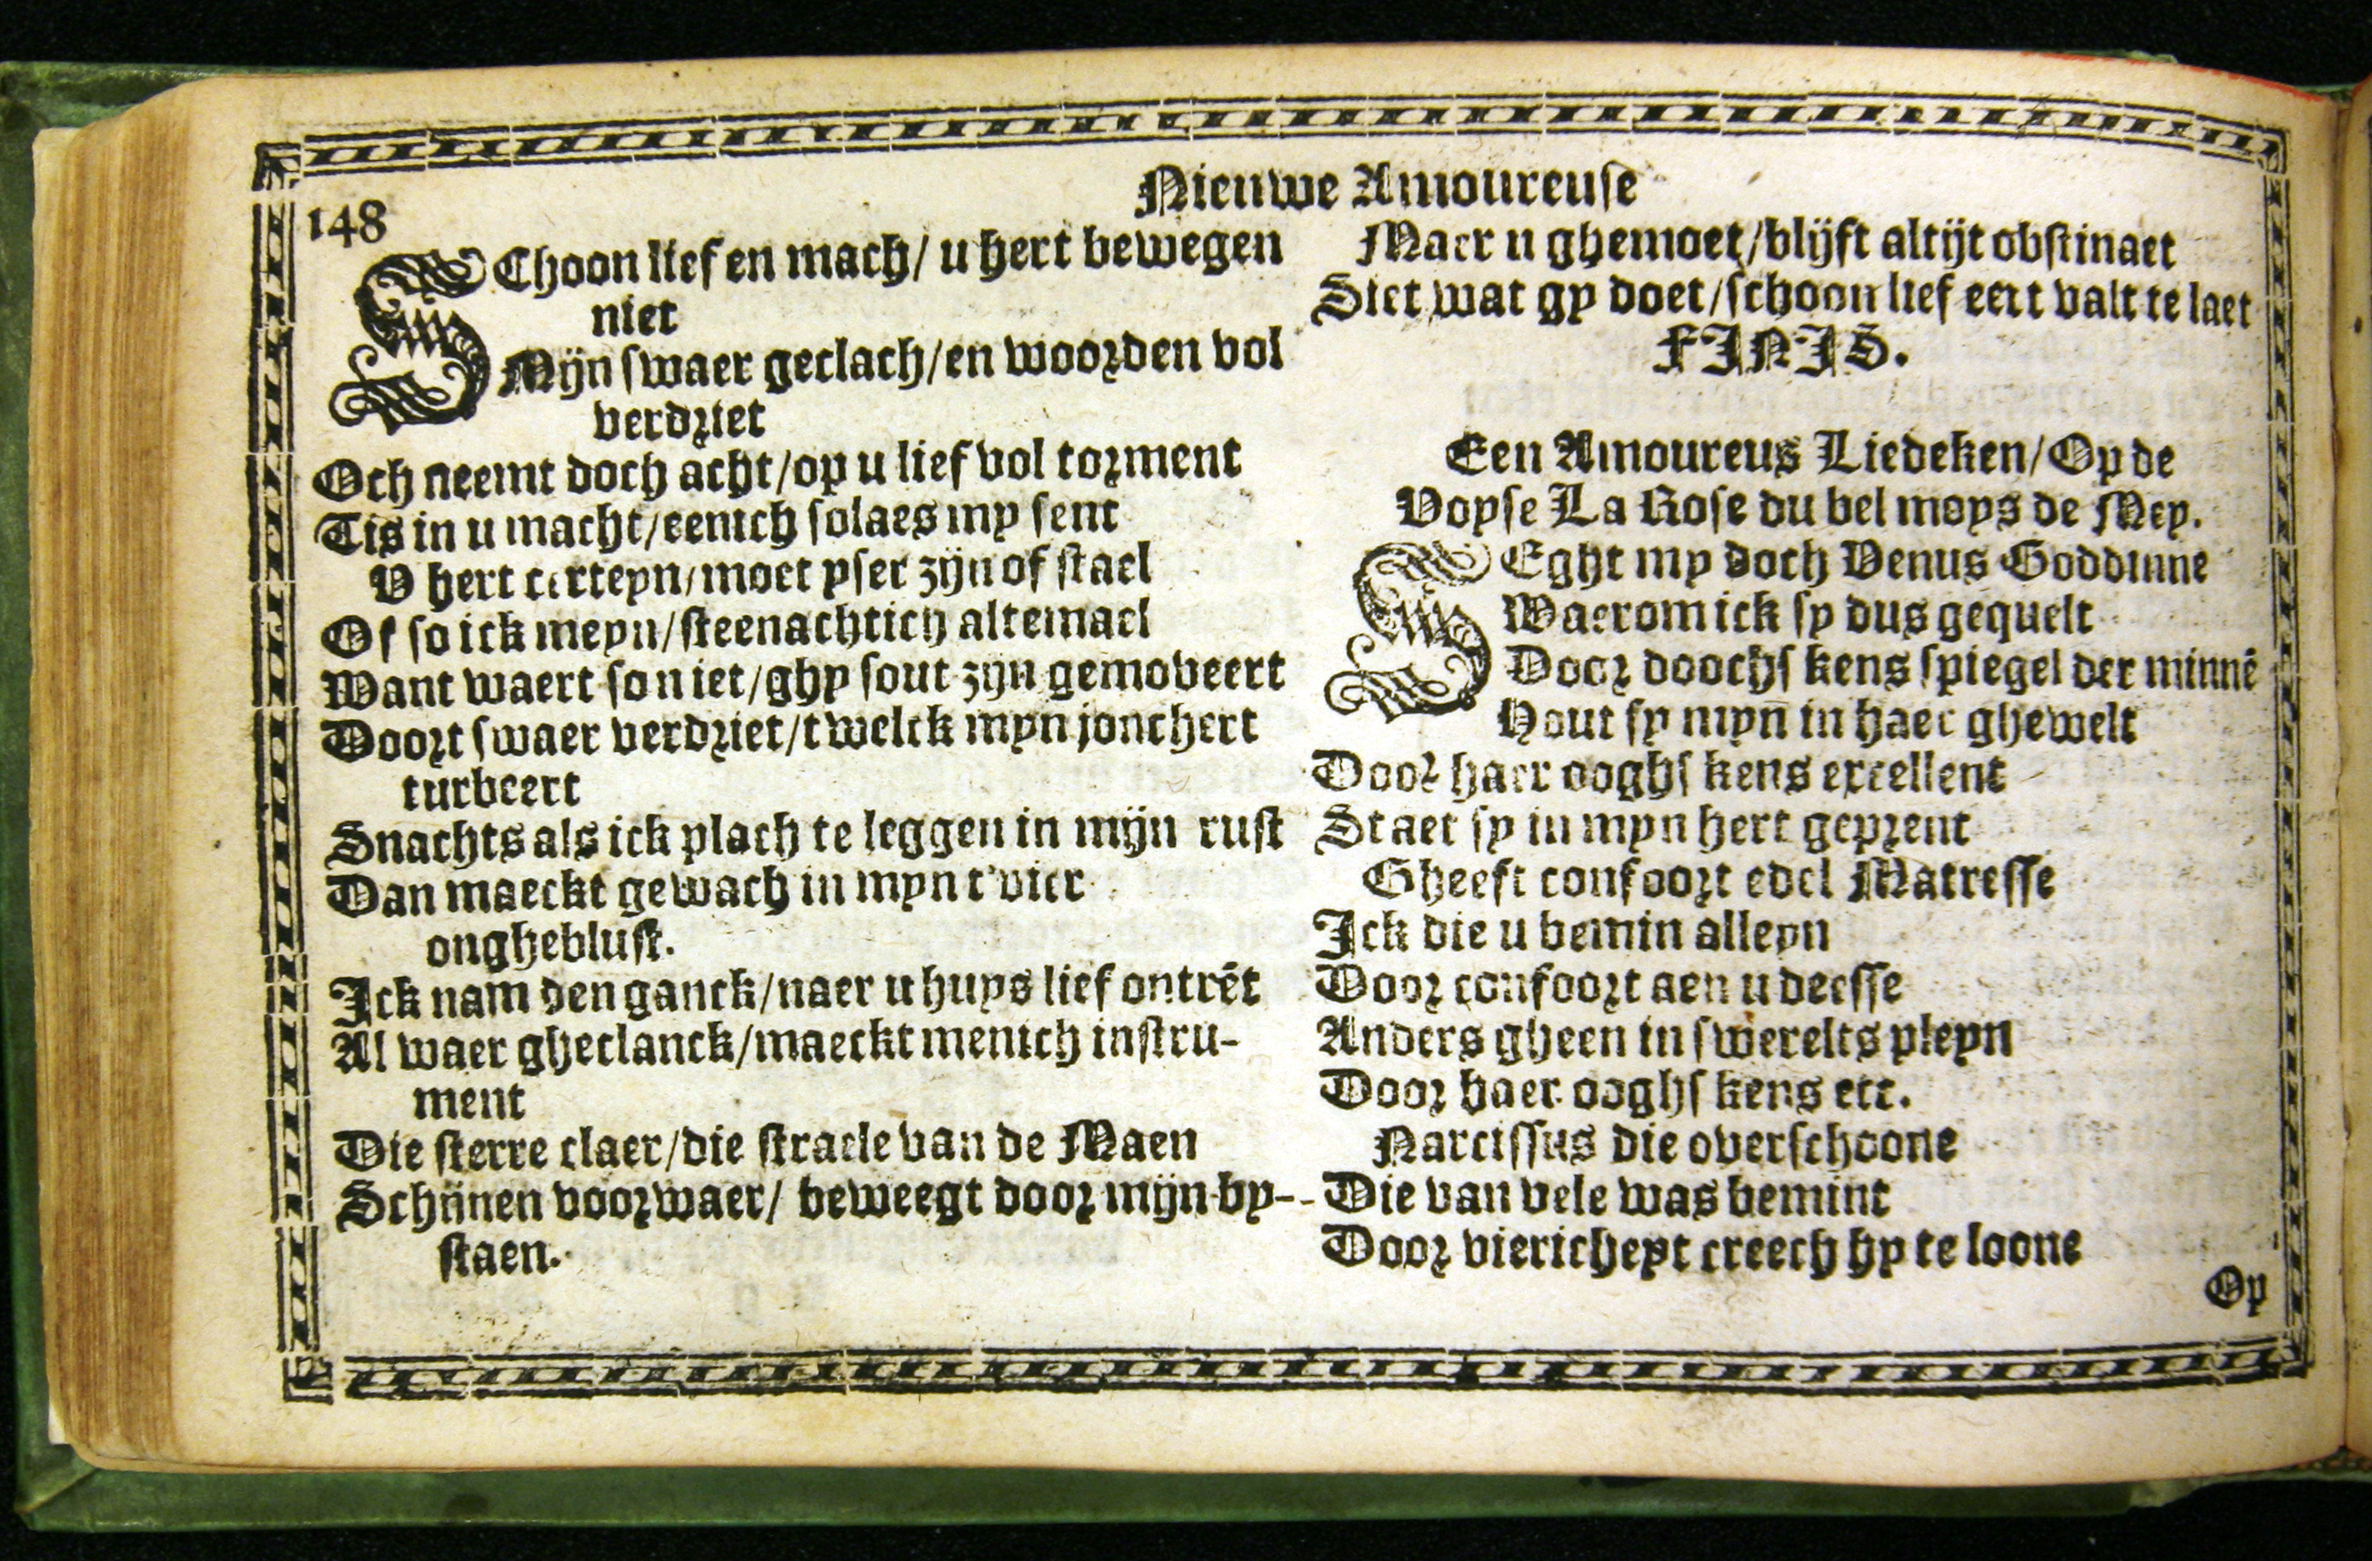 148
Nieuwe Amoureuse
SChoon lief en mach/ u hert bewegen
niet
Mijn swaer geclach/en woorden vol
verdriet
Och neemt doch acht/op u lief vol torment
Tis in u macht/eenich solaes my sent
V hert certeyn/moet yser zijn of stael
Of so ick meyn/steenachtich altemael
Want waert so niet/ghy sout zijn gemoveert
Doort swaer verdriet/twelck myn jonc hert
turbeert
Snachts als ick plach te leggen in mijn rust
Dan maeckt gewach in myn t'vier
ongheblust.
Ick nam den ganck/naer u huys lief ontrēt
Al waer gheclanck/maeckt menich instru-
ment
Die sterre claer/die straele van de Maen
Schijnen voorwaer/ beweegt door mijn by-
staen.
Maer u ghemoet/blijft altijt obstinaet
Siet wat gy doet/schoon lief eert valt te laet
FINIS.
Een Amoureus Liedeken/Op de
Voyse La Rose du bel moys de Mey.
SEght my doch Venus Goddinne
Waerom ick sy dus gequelt
Door doochskens spiegel der minnē
Hout sy myn in haer ghewelt
Door haer ooghskens excellent
Staet sy in myn hert geprent
Gheeft confoort edel Matresse
Ick die u bemin alleyn
Door confoort aen u deesse
Anders gheen in swerelts pleyn
Door haer ooghskens etc.
Narcissus die overschoone
Die van vele was bemint
Door viericheyt creech hy te loone
Op